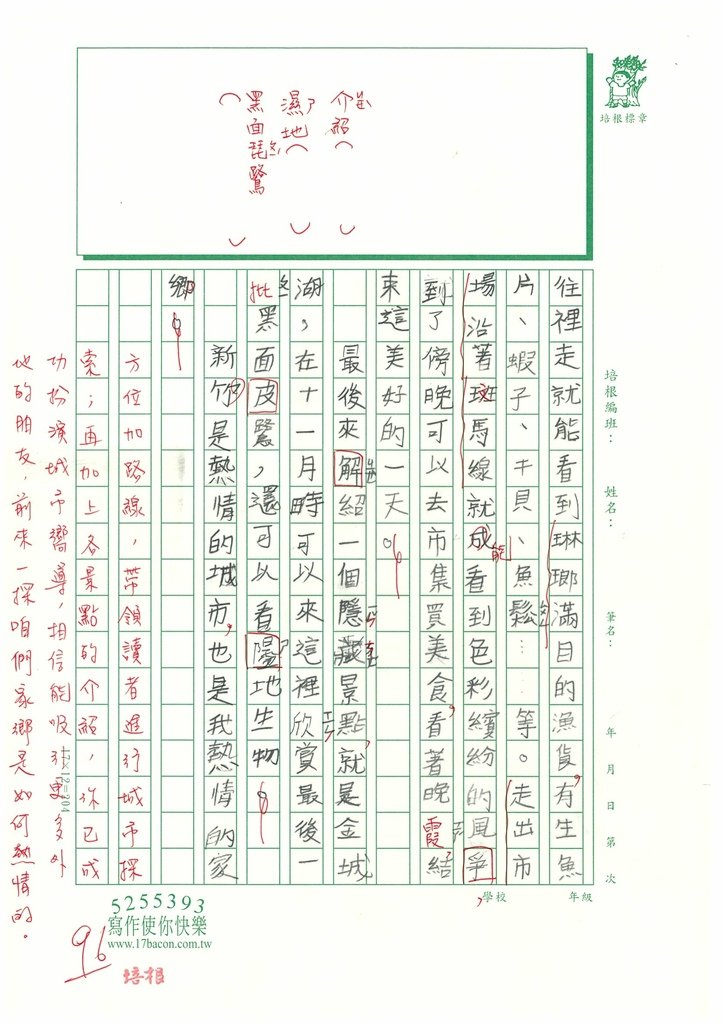 介紹（ ）
濕地（ ）
黑面琵鷺
（ ）
培根標章
往裡走就能看到琳瑯滿目的漁貨有生魚
片、蝦子、干貝、魚鬆……等。走出市
場沿著斑馬線就成看到色彩繽紛的風爭
能
到了傍晚可以去市集買美食看著晚霞結
束這美好的一天。
最後來解紹一個隱藏景點就是金城
湖，在十一月時可以來這裡欣賞最後一
批
黑面皮鷺，還可以看隰地生物
新竹是熱情的城市，也是我熱情的家
鄉。
方位加路線，帶領讀者進行城市探
索；再加上各景點的介紹，你已成
功扮演城市嚮導，相信能吸引更多外
地的朋友，前來一探咱們家鄉是如何熱情的。
17×12=204
培根編班：
姓名：
筆名：
年 月 日 第 次
學校
年級
5255393
寫作使你快樂
www.17bacon.com.tw
96
培根